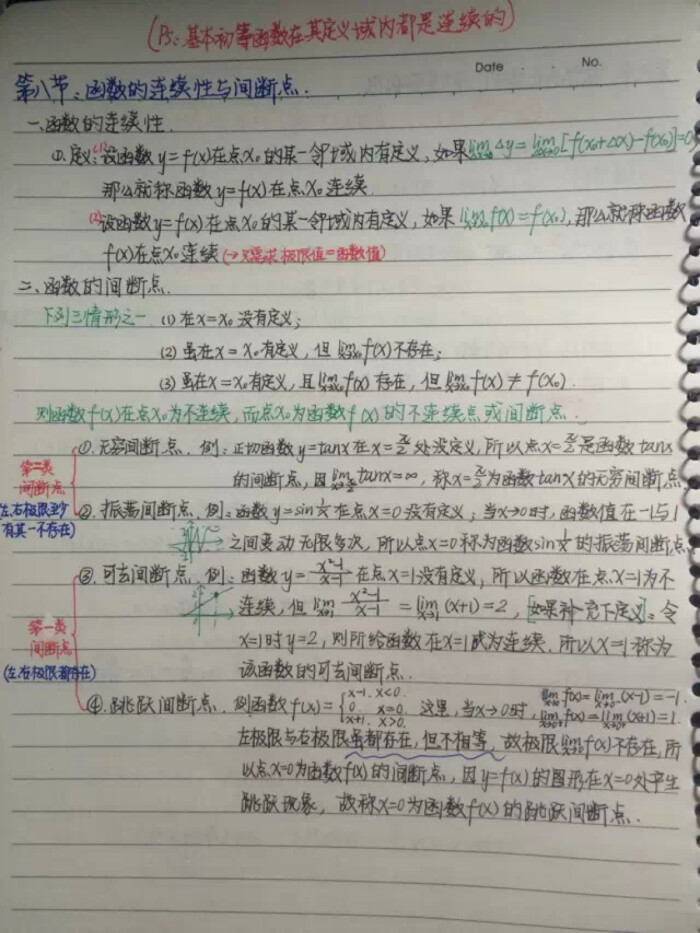 (Ps:基本初等函数在其定义域内都是连续的)
Date . . No.
第八节:函数的连续性与间断点.
一、函数的连续性.
①.定义:(1)设函数y=f(x)在点x₀的某一邻域内有定义,如果lim Δx→0 Δy=lim Δx→0[f(x₀+Δx)-f(x₀)]=0
那么就称函数y=f(x)在点x₀连续.
(2)设函数y=f(x)在点x₀的某一邻域内有定义,如果lim x→x₀ f(x)=f(x₀),那么就称函数
f(x)在点x₀连续(→只需求极限值=函数值)
二、函数的间断点.
下列三情形之一 (1)在x=x₀没有定义;
(2)虽在x=x₀有定义,但lim x→x₀ f(x)不存在;
(3)虽在x=x₀有定义,且lim x→x₀ f(x)存在,但lim x→x₀ f(x)≠f(x₀).
则函数f(x)在点x₀为不连续,而点x₀为函数f(x)的不连续点或间断点.
第二类
间断点
(左、右极限至少
有其一不存在)
①.无穷间断点.例:正切函数y=tanx在x=π/2处没定义,所以点x=π/2是函数tanx
的间断点,因lim x→π/2 tanx=∞,称x=π/2为函数tanx的无穷间断点
②.振荡间断点.例:函数y=sin1/x在点x=0没有定义;当x→0时,函数值在-1与1
之间变动无限多次,所以点x=0称为函数sin1/x的振荡间断点
第一类
间断点
(左右极限都存在)
③.可去间断点.例:函数y=x²-1/x-1在点x=1没有定义,所以函数在点x=1为不
连续,但lim x→1 x²-1/x-1=lim x→1(x+1)=2,[如果补充下定义]:令
x=1时y=2,则所给函数在x=1成为连续.所以x=1称为
该函数的可去间断点.
④.跳跃间断点.例函数f(x)={x-1, x<0. 0 x=0. x+1, x>0. 这里,当x→0时,lim x→0⁻ f(x)=lim x→0⁻(x-1)=-1. lim x→0⁺ f(x)=lim x→0⁺(x+1)=1.
左极限与右极限虽都存在,但不相等,故极限lim x→0 f(x)不存在,所
以点x=0为函数f(x)的间断点,因y=f(x)的图形在x=0处产生
跳跃现象,故称x=0为函数f(x)的跳跃间断点.